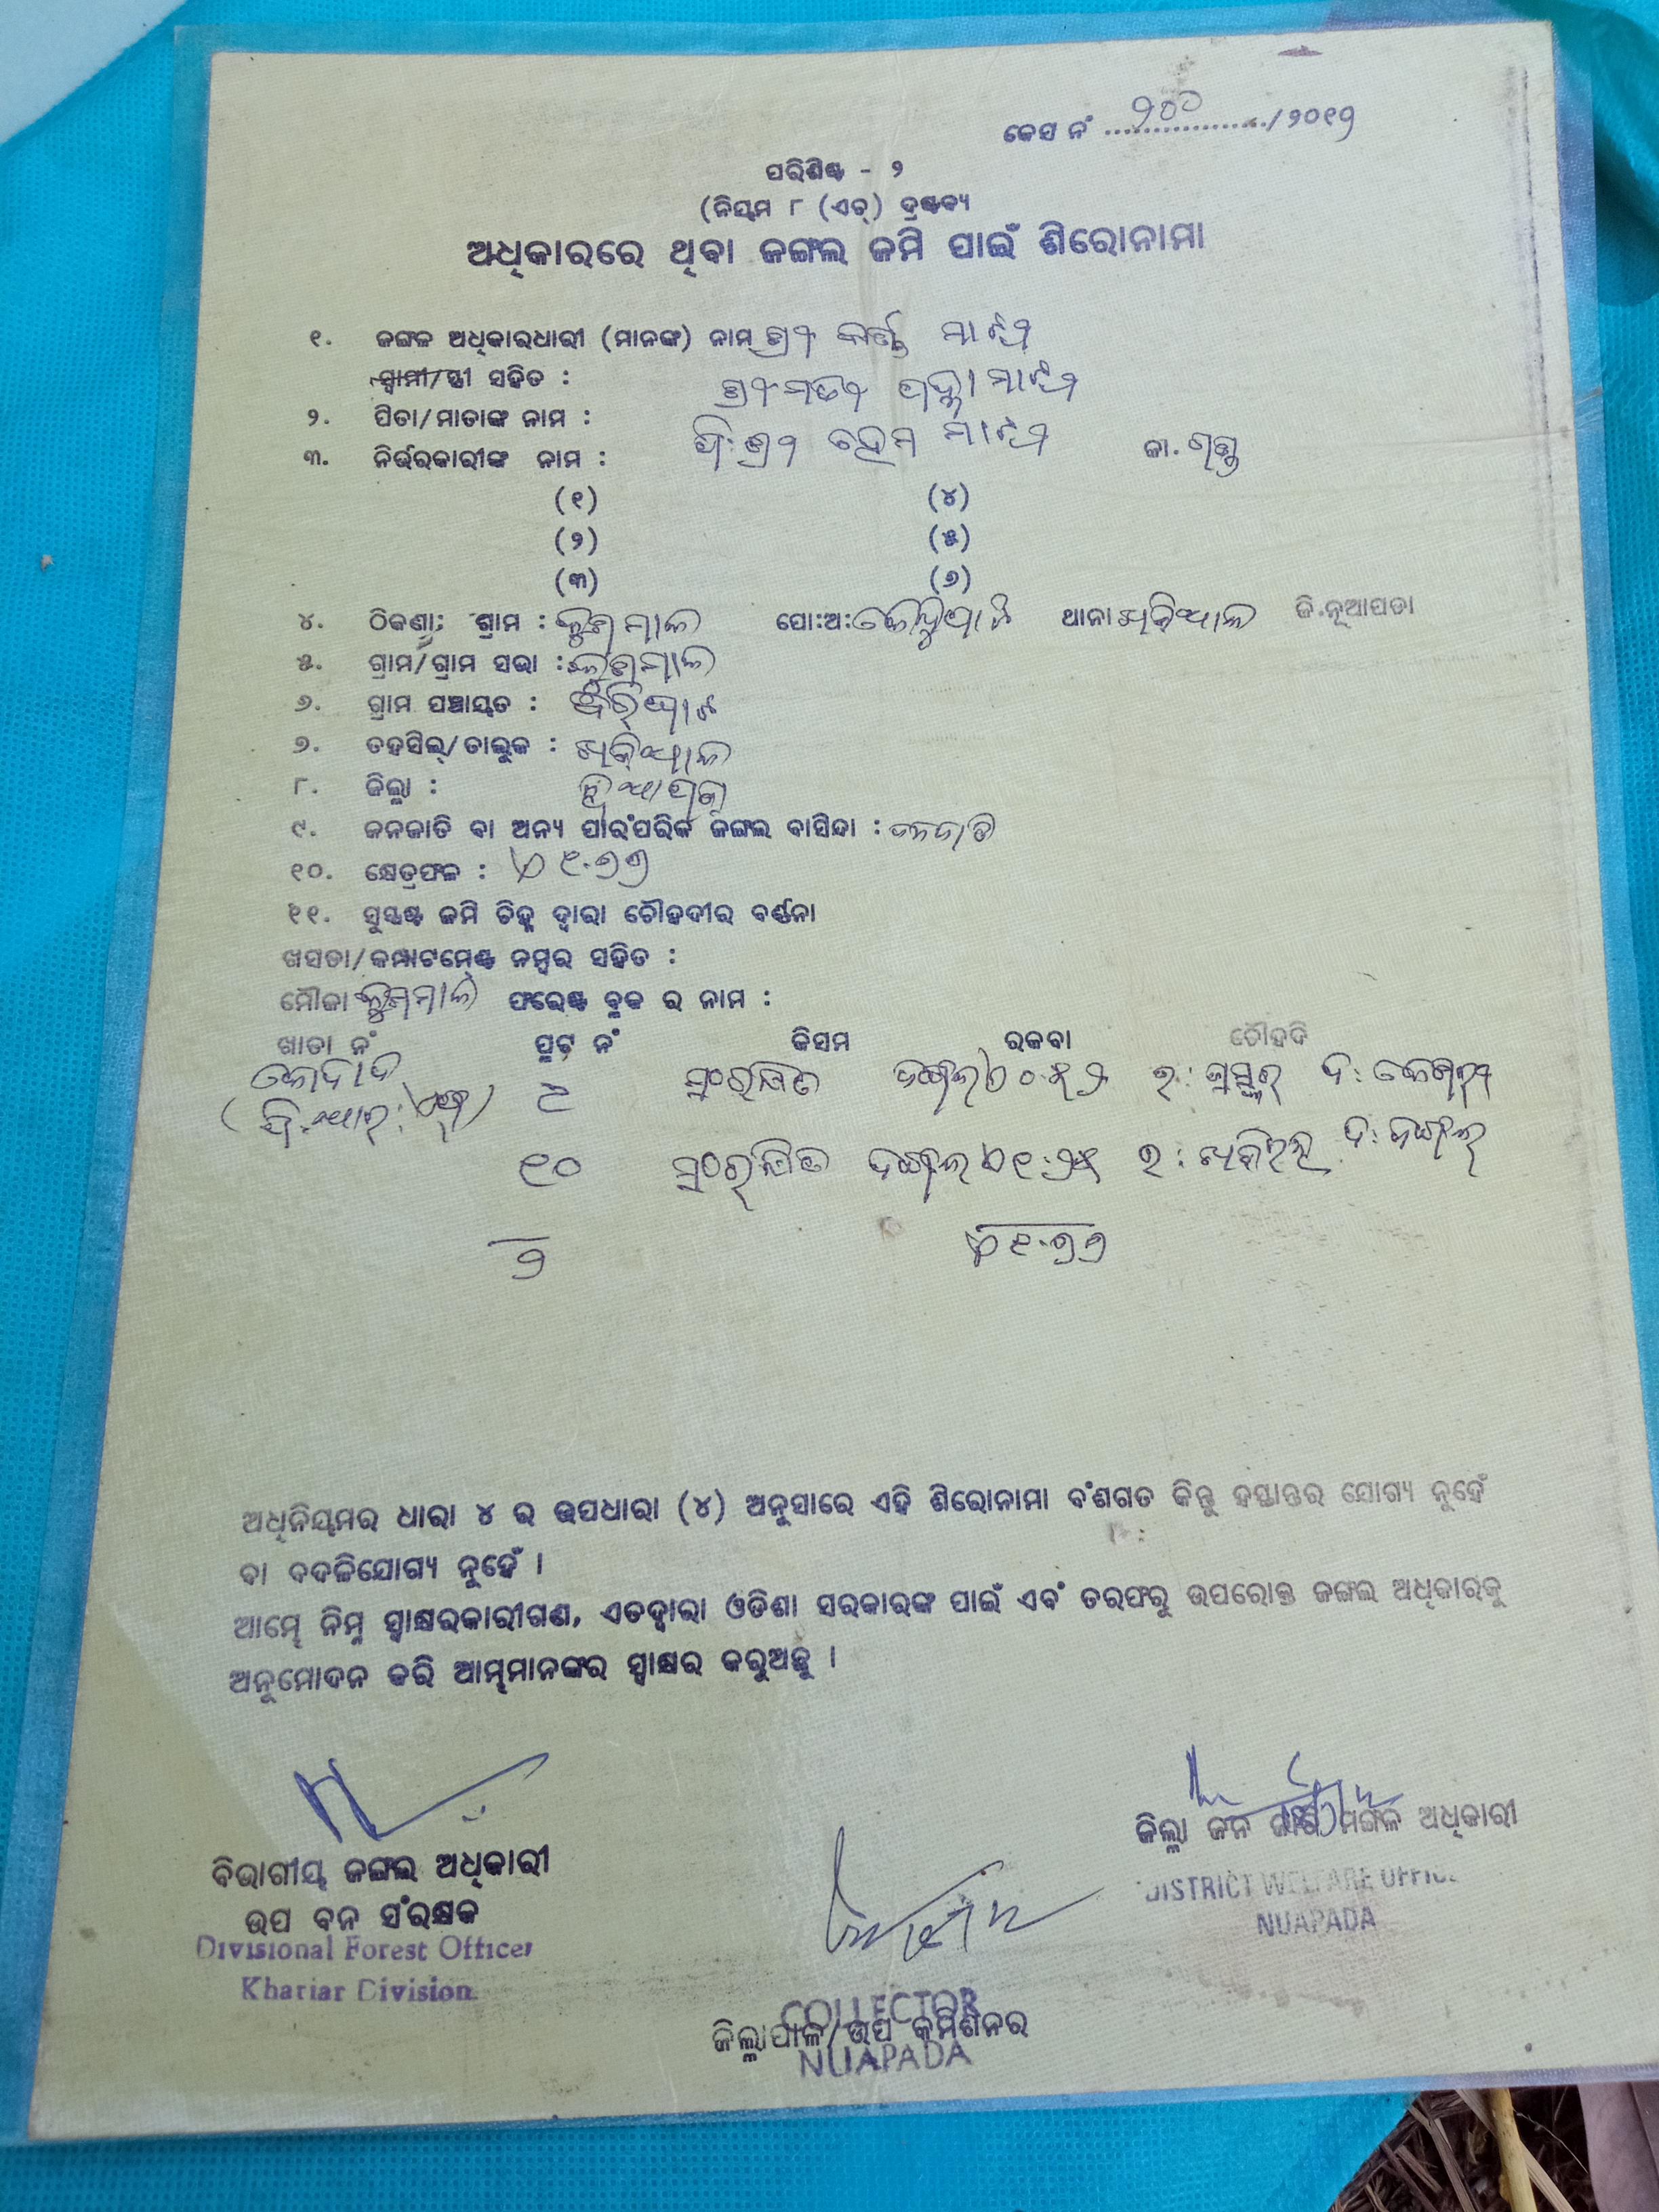 କେସ ନଂ ୨୦୦ /୨୦୧୨
ପରିଶିଷ୍ଟ - ୨
(ନିୟମ ୮ (ଏଚ୍) ଦ୍ରଷ୍ଟବ୍ୟ
ଅଧିକାରରେ ଥିବା ଜଙ୍ଗଲ ଜମି ପାଇଁ ଶିରୋନାମା
୧. ଜଙ୍ଗଳ ଅଧିକାରଧାରୀ (ମାନଙ୍କ) ନାମ ଶ୍ରୀ କର୍ଣ୍ଣ ମାଝୀ
ସ୍ୱାମୀ/ସ୍ତ୍ରୀ ସହିତ : ଶ୍ରୀମତୀ ପଦ୍ମା ମାଝୀ
୨. ପିତା/ମାତାଙ୍କ ନାମ : ପି: ଶ୍ରୀ ହେମ ମାଝୀ ଜା. ଗଣ୍ଡ
୩. ନିର୍ଭରକାରୀଙ୍କ ନାମ :
(୧) (୪)
(୨) (୫)
(୩) (୬)
୪. ଠିକଣା; ଗ୍ରାମ : ପୋ:ଅ: ଥାନା ଖଡ଼ିଆଳ ଜି.ନୂଆପଡା
୫. ଗ୍ରାମ/ଗ୍ରାମ ସଭା :
୬. ଗ୍ରାମ ପଞ୍ଚାୟତ :
୭. ତହସିଲ୍/ତାଲୁକ : ଖଡ଼ିଆଳ
୮. ଜିଲ୍ଲା : ନୂଆପଡ଼ା
୯. ଜନଜାତି ବା ଅନ୍ୟ ପାରଂପରିକ ଜଙ୍ଗଲ ବାସିନ୍ଦା : ଜନଜାତି
୧୦. କ୍ଷେତ୍ରଫଳ : ଏ ୧.୭୭
୧୧. ସୁସ୍ପଷ୍ଟ ଜମି ଚିହ୍ନ ଦ୍ୱାରା ଚୌହଦୀର ବର୍ଣ୍ଣନା
ଖସଡା/କମ୍ପାଟମେଣ୍ଟ ନମ୍ବର ସହିତ :
ମୌଜା ଫରେଷ୍ଟ ବ୍ଲକ ର ନାମ :
ଖାତା ନଂ ପ୍ଲଟ ନଂ କିସମ ରକବା ଚୌହଦି
୯ ସଂରକ୍ଷିତ ଜଙ୍ଗଲ ଏ ୦.୫୨ ଉ: ଦ:
୧୦ ସଂରକ୍ଷିତ ଜଙ୍ଗଲ ଏ ୧.୨୫ ଉ: ଦ: ଜଙ୍ଗଲ
୨ ଏ ୧.୭୭
ଅଧିନିୟମର ଧାରା ୪ ର ଉପଧାରା (୪) ଅନୁସାରେ ଏହି ଶିରୋନାମା ବଂଶଗତ କିନ୍ତୁ ହସ୍ତାନ୍ତର ଯୋଗ୍ୟ ନୁହେଁ
ବା ବଦଳିଯୋଗ୍ୟ ନୁହେଁ ।
ଆମ୍ଭେ ନିମ୍ନ ସ୍ୱାକ୍ଷରକାରୀଗଣ, ଏତଦ୍ୱାରା ଓଡିଶା ସରକାରଙ୍କ ପାଇଁ ଏବଂ ତରଫରୁ ଉପରୋକ୍ତ ଜଙ୍ଗଲ ଅଧିକାରକୁ
ଅନୁମୋଦନ କରି ଆମ୍ଭମାନଙ୍କର ସ୍ୱାକ୍ଷର କରୁଅଛୁ ।
ଜିଲ୍ଲା ଜନ ଜାତି ମଙ୍ଗଳ ଅଧିକାରୀ
DISTRICT WELFARE OFFICE
NUAPADA
ବିଭାଗୀୟ ଜଙ୍ଗଲ ଅଧିକାରୀ
ଉପ ବନ ସଂରକ୍ଷକ
Divisional Forest Officer
Khariar Division
COLLECTOR
ଜିଲ୍ଲାପାଳ/ଉପ କମିଶନର
NUAPADA